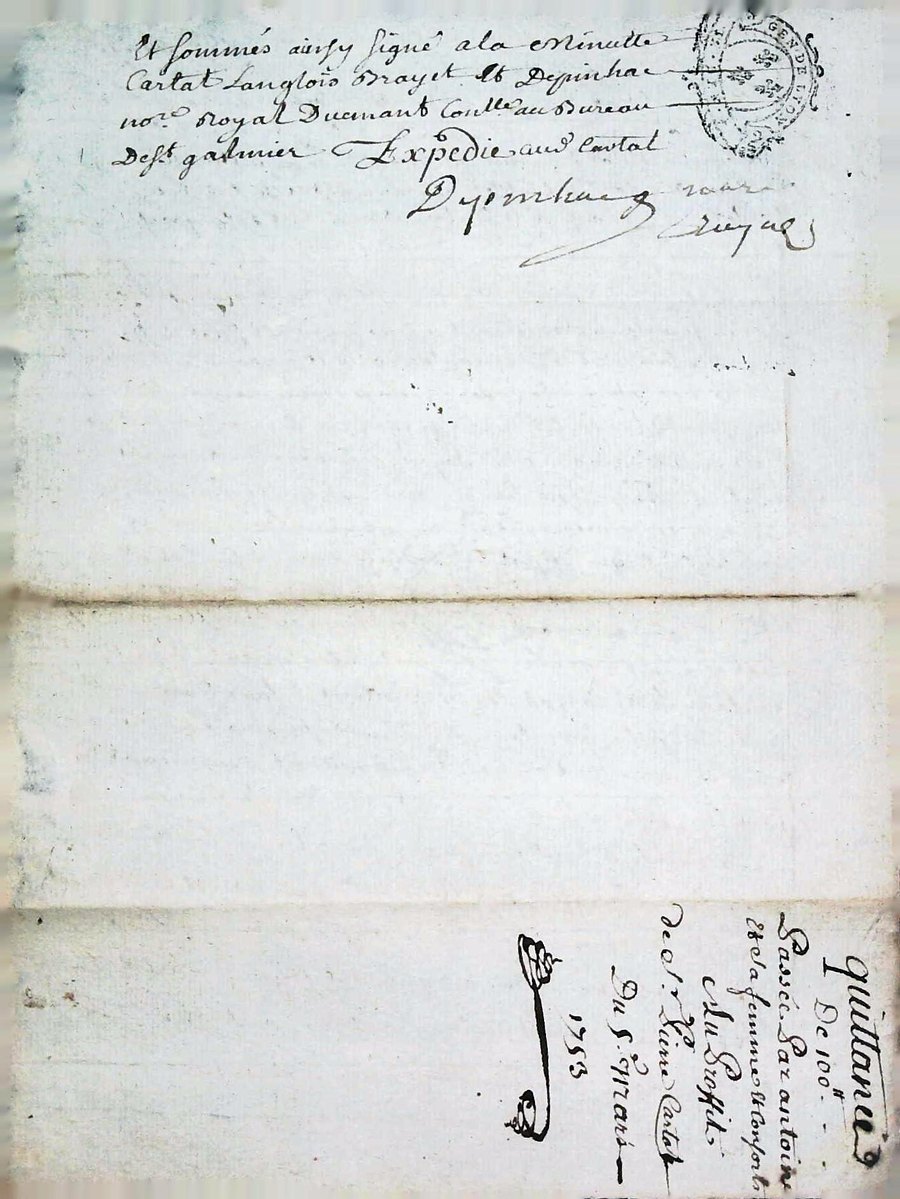 Et sommés ainsy signé a la Minutte
Cartal Langlois Brayet Et Depinhac
no.re Royal Dumant Contlle au Bureau
De st galmier Expedié aud Cartal
Depinhac
GEN DE LYON
quittance
De 100
Passée Par antoine
Et sa femme Et Conforts
Au Proffit
de Sr Pierre Cartal
Du 5e Mars
1753